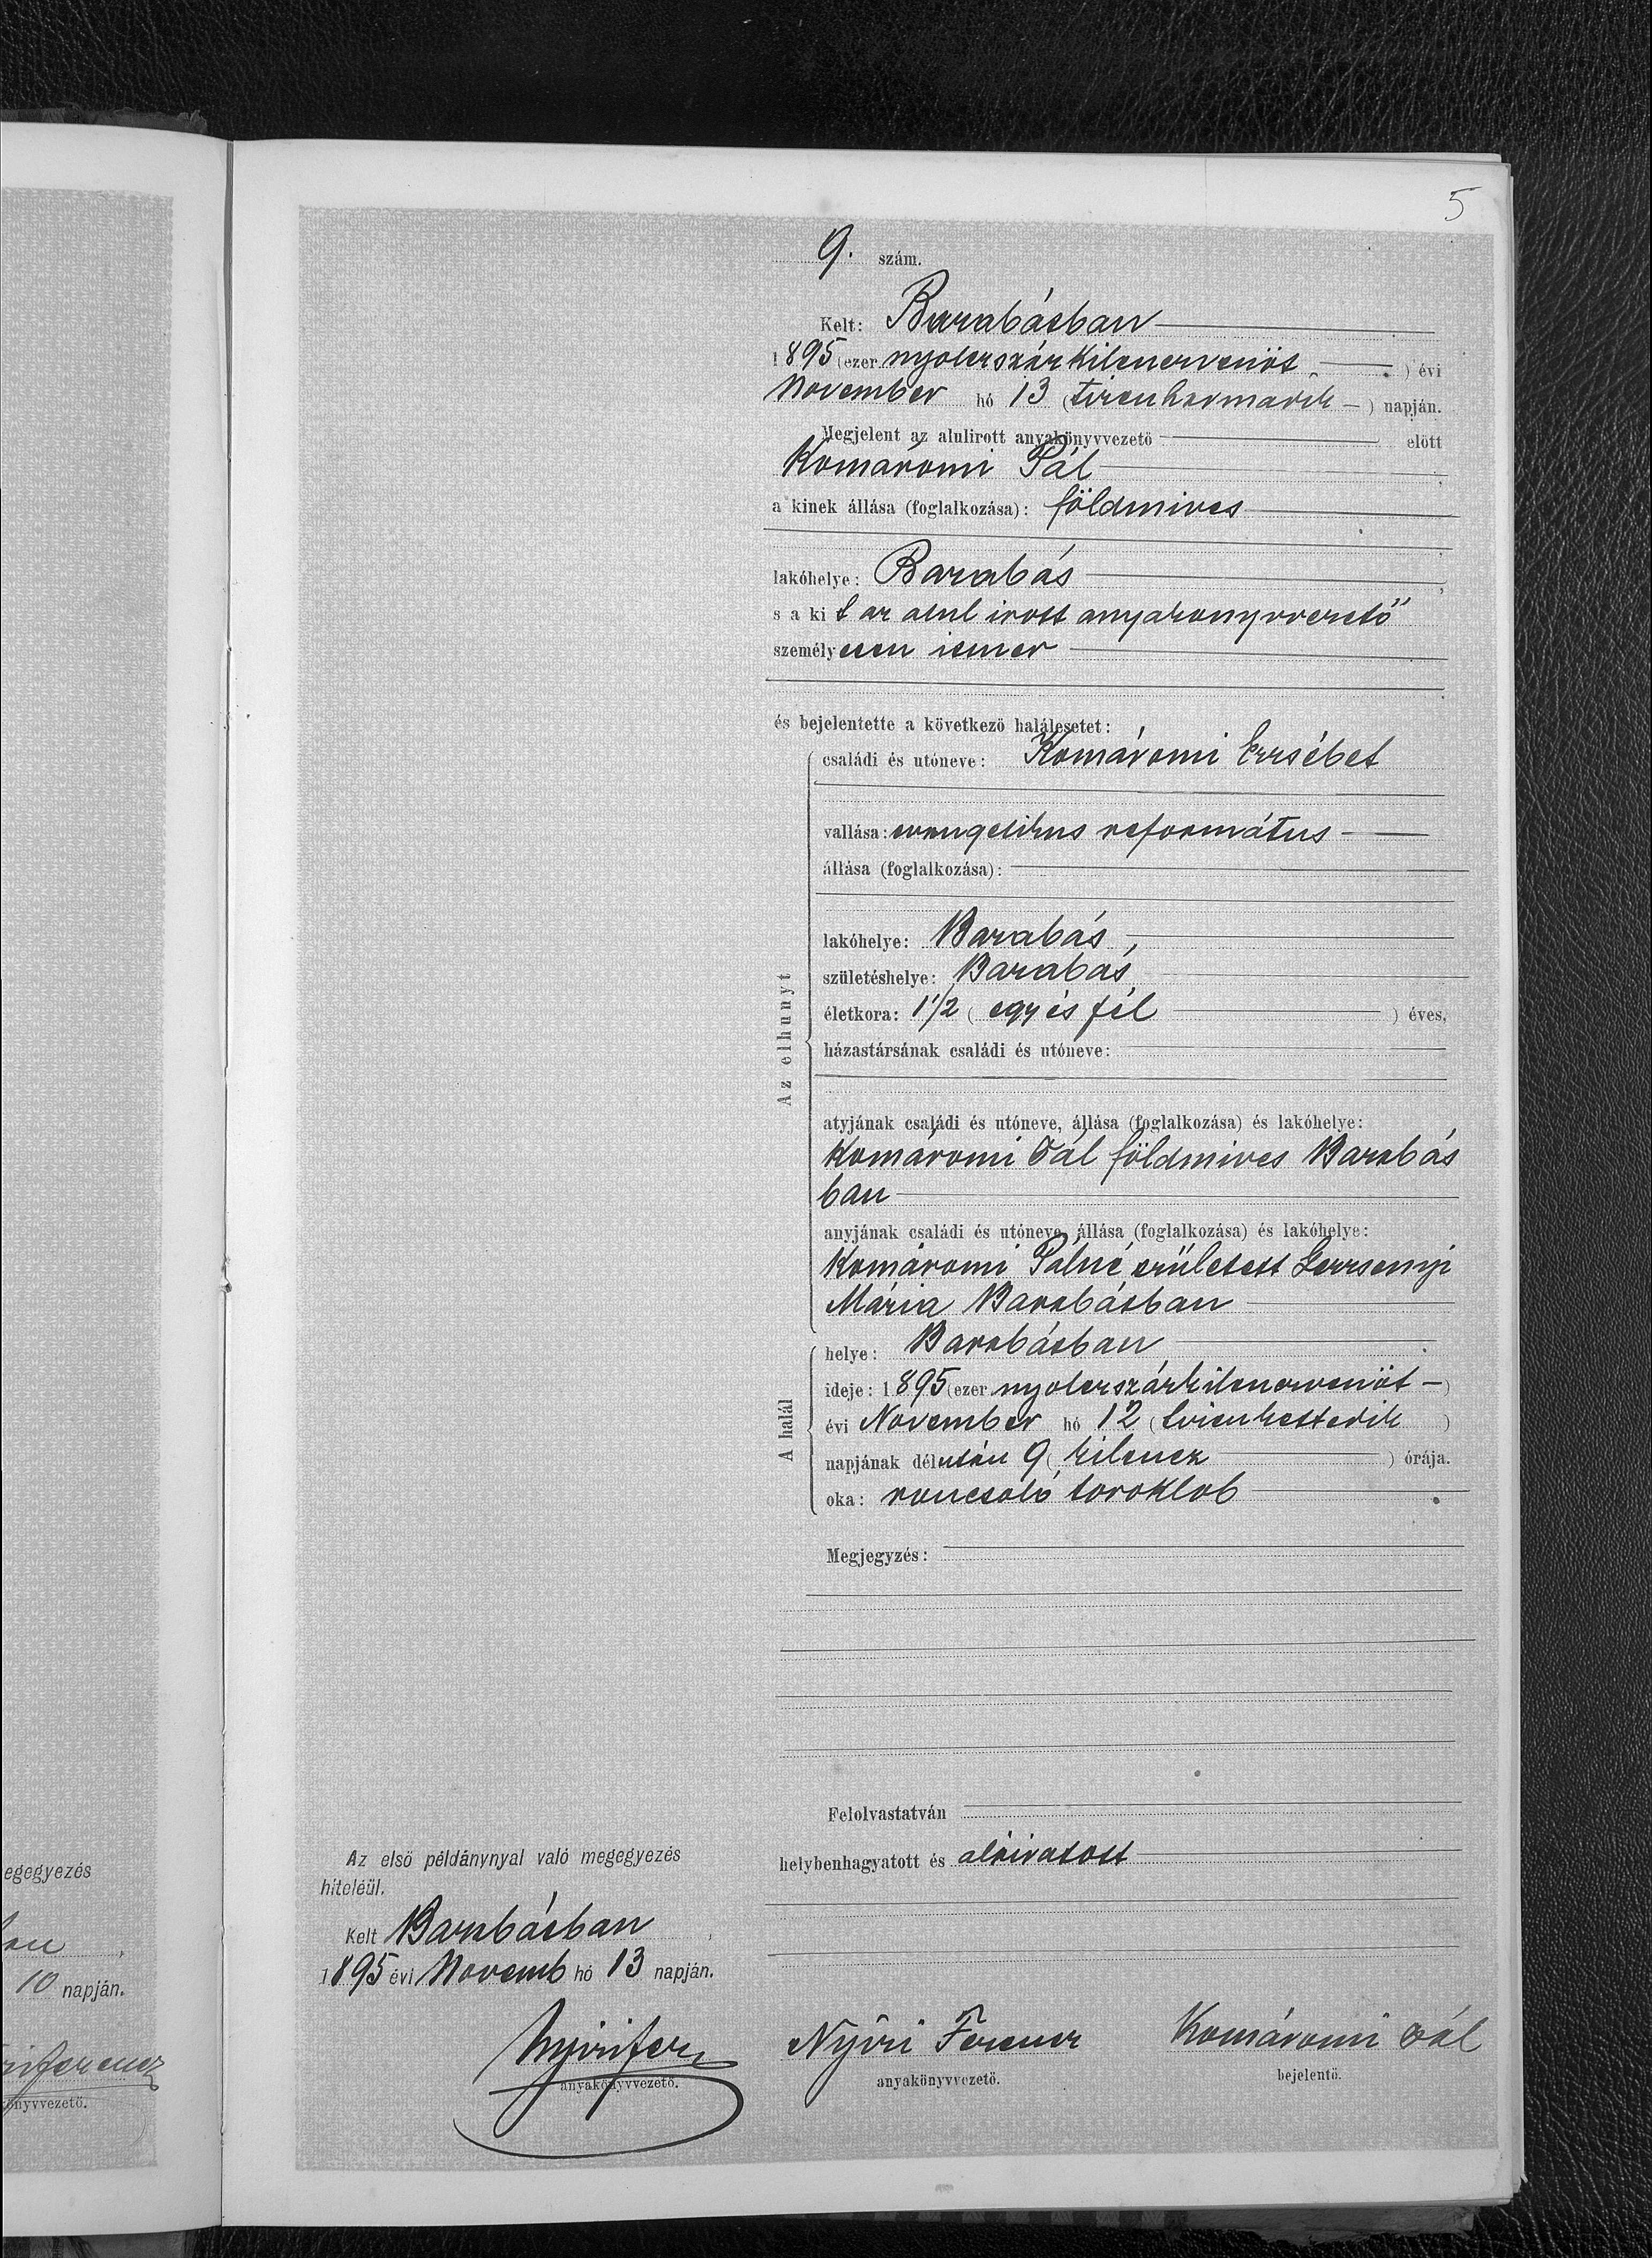 5
9. szám.
Kelt: Barabásban
1895 (ezer nyolczszáz kilenczvenöt ) évi
November hó 13 (tizenharmadik ) napján.
Megjelent az alulirott anyakönyvvezető előtt
Komáromi Pál
a kinek állása (foglalkozása): földmives
lakóhelye: Barabás
s a kit az alul irott anyakonyvvezető
személyesen ismer
és bejelentette a következő halálesetet:
Az elhunyt
családi és utóneve: Komáromi Erzsébet
vallása: evangelikus református
állása (foglalkozása):
lakóhelye: Barabás,
születéshelye: Barabás
életkora: 1 1/2 ( egy és fél ) éves,
házastársának családi és utóneve:
atyjának családi és utóneve, állása (foglalkozása) és lakóhelye:
Komáromi Pál földmives Barabás
ban
anyjának családi és utóneve, állása (foglalkozása) és lakóhelye:
Komáromi Pálné született
Mária Barabásban
A halál
helye: Barabásban
ideje: 1895 (ezer nyolczszázkilenczvenöt )
évi November hó 12 (tizenkettedik )
napjának délután 9 ( kilencz ) órája.
oka: roncsoló toroklob
Megjegyzés:
Felolvastatván
helybenhagyatott és aláiratott
Az első példánynyal való megegyezés
hiteléül.
Kelt Barabásban
1895 évi Novemb hó 13 napján.
Nyiri Ferencz Komáromi Pál
anyakönyvvezető. anyakönyvvezető. bejelentő.
egegyezés
10 napján.
könyvvezető.